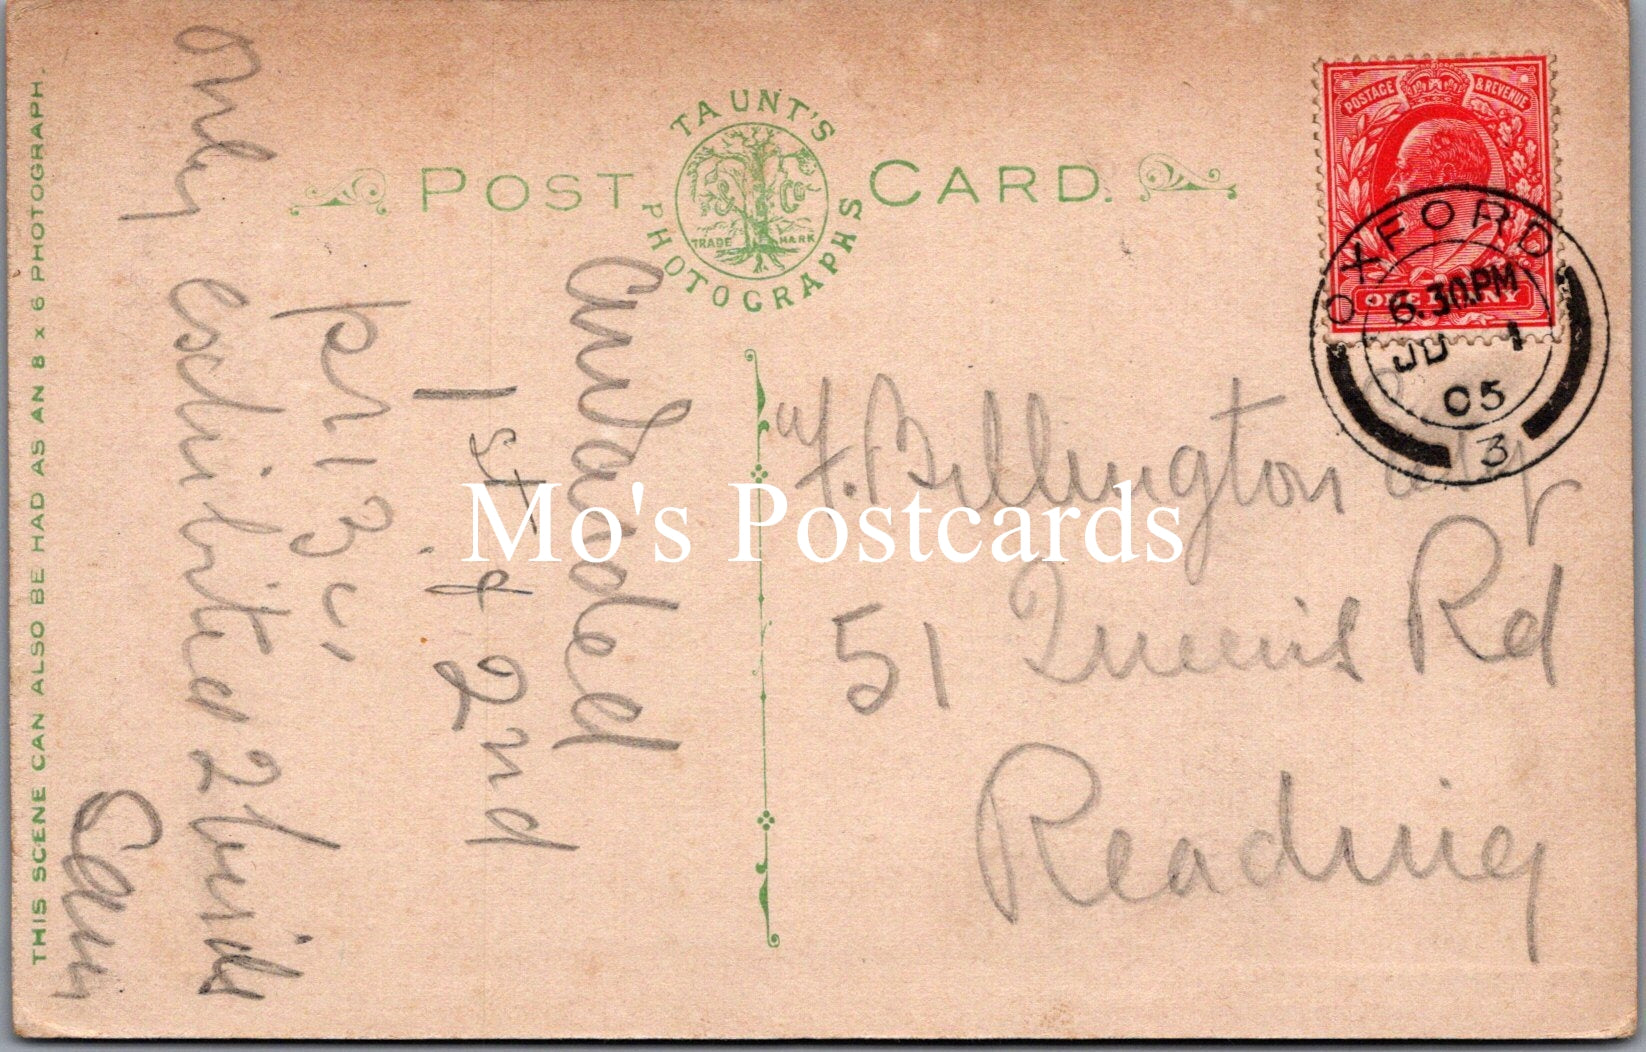 THIS SCENE CAN ALSO BE HAD AS AN 8 x 6 PHOTOGRAPH.
POST CARD.
TAUNT'S PHOTOGRAPHS
& Co
TRADE MARK
POSTAGE & REVENUE
ONE PENNY
OXFORD
6.30.PM
JU 1
05
3
awarded
1st & 2nd
pri 3c,
only exhibited 2 birds
Sam
F. Billington Esq
51 Queens Rd
Reading
Mo's Postcards